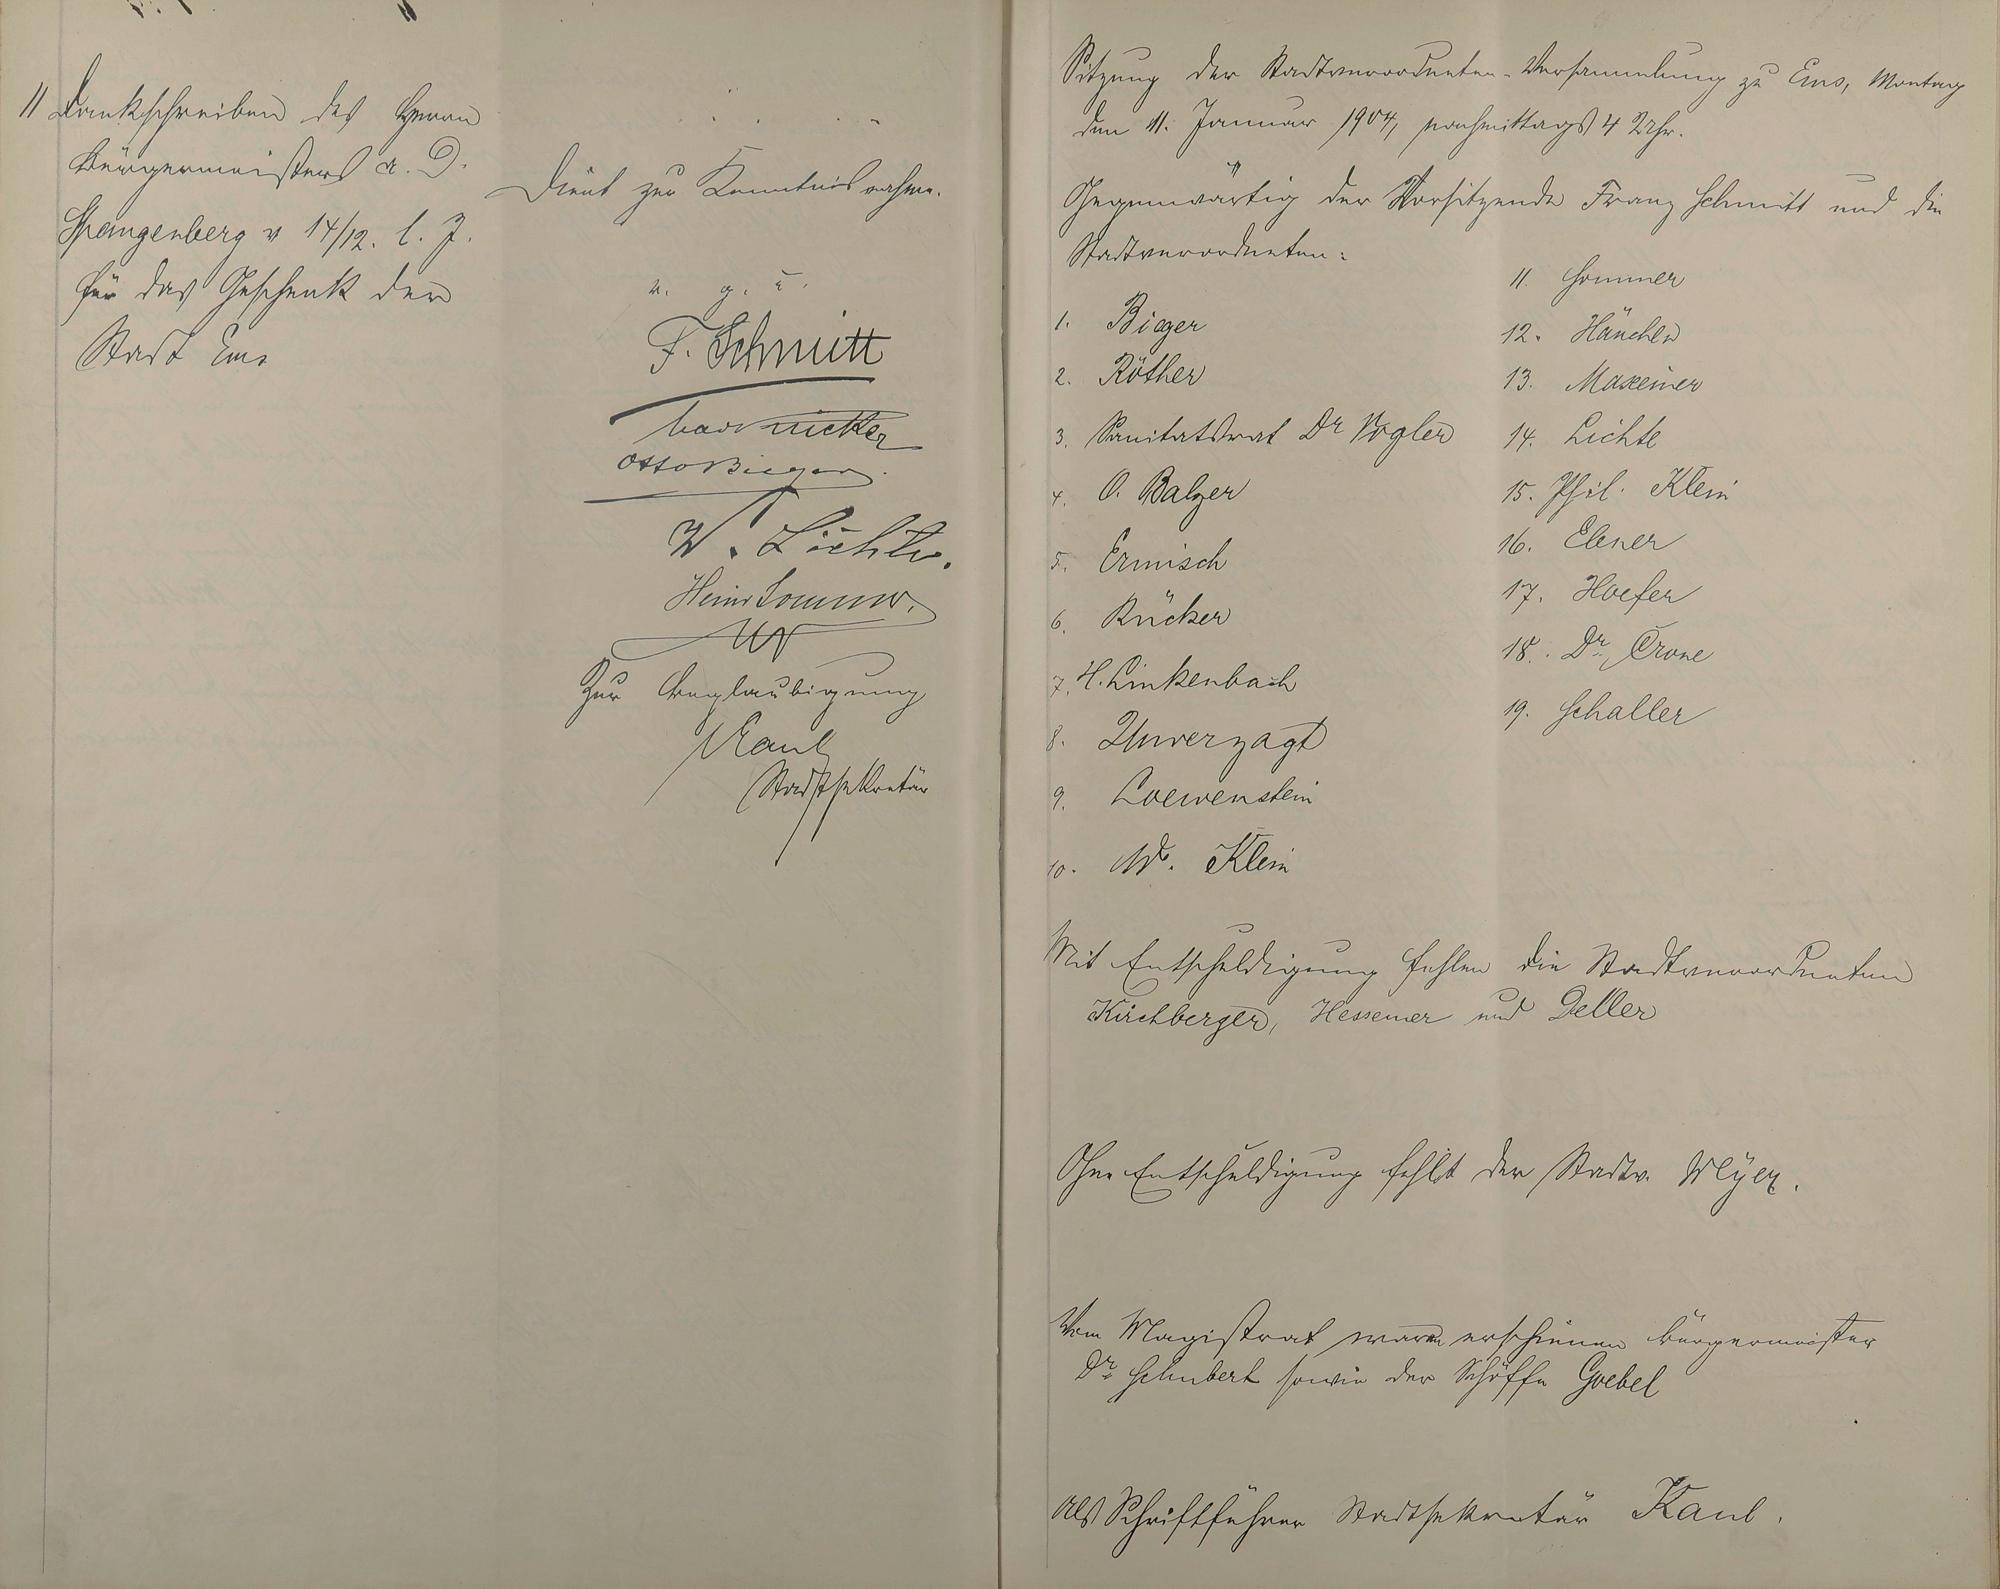 11 Dankschreiben des Herrn
Bürgermeisters a. D.
Spangenberg v 14/12. l. J.
für das Geschenk der
Stadt Ems
Dient zur Kenntnisnahme.
v. g. u.
F. Schmitt
Rücker
Otto Bieger
W. Lichte.
Heinr Sommer.
Zur Beglaubigung
Kaul
Stadtsekretär
Sitzung der Stadtverordneten-Versammlung zu Ems, Montag
den 11. Januar 1904, nachmittags 4 Uhr.
Gegenwärtig der Vorsitzende Franz Schmitt und die
Stadtverordneten:
1. Bieger
2. Röther
3. Sanitätsrat Dr Vogler
4. O. Balzer
5. Ermisch
6. Rücker
7. H. Linkenbach
8. Unverzagt
9. Loewenstein
10. Klein
11. Sommer
12. Hänchen
13. Maxeiner
14. Lichte
15. Phil. Klein
16. Ebner
17. Hoefer
18. Dr. Crone
19. Schaller
Mit Entschuldigung fehlen die Stadtverordneten
Kirchberger, Hessemer und Deller
Ohne Entschuldigung fehlt der Stadtv. Meyer.
Vom Magistrat waren erschienen Bürgermeister
Dr Schubert sowie der Schöffe Goebel
Als Schriftführer Stadtsekretär Kaul.